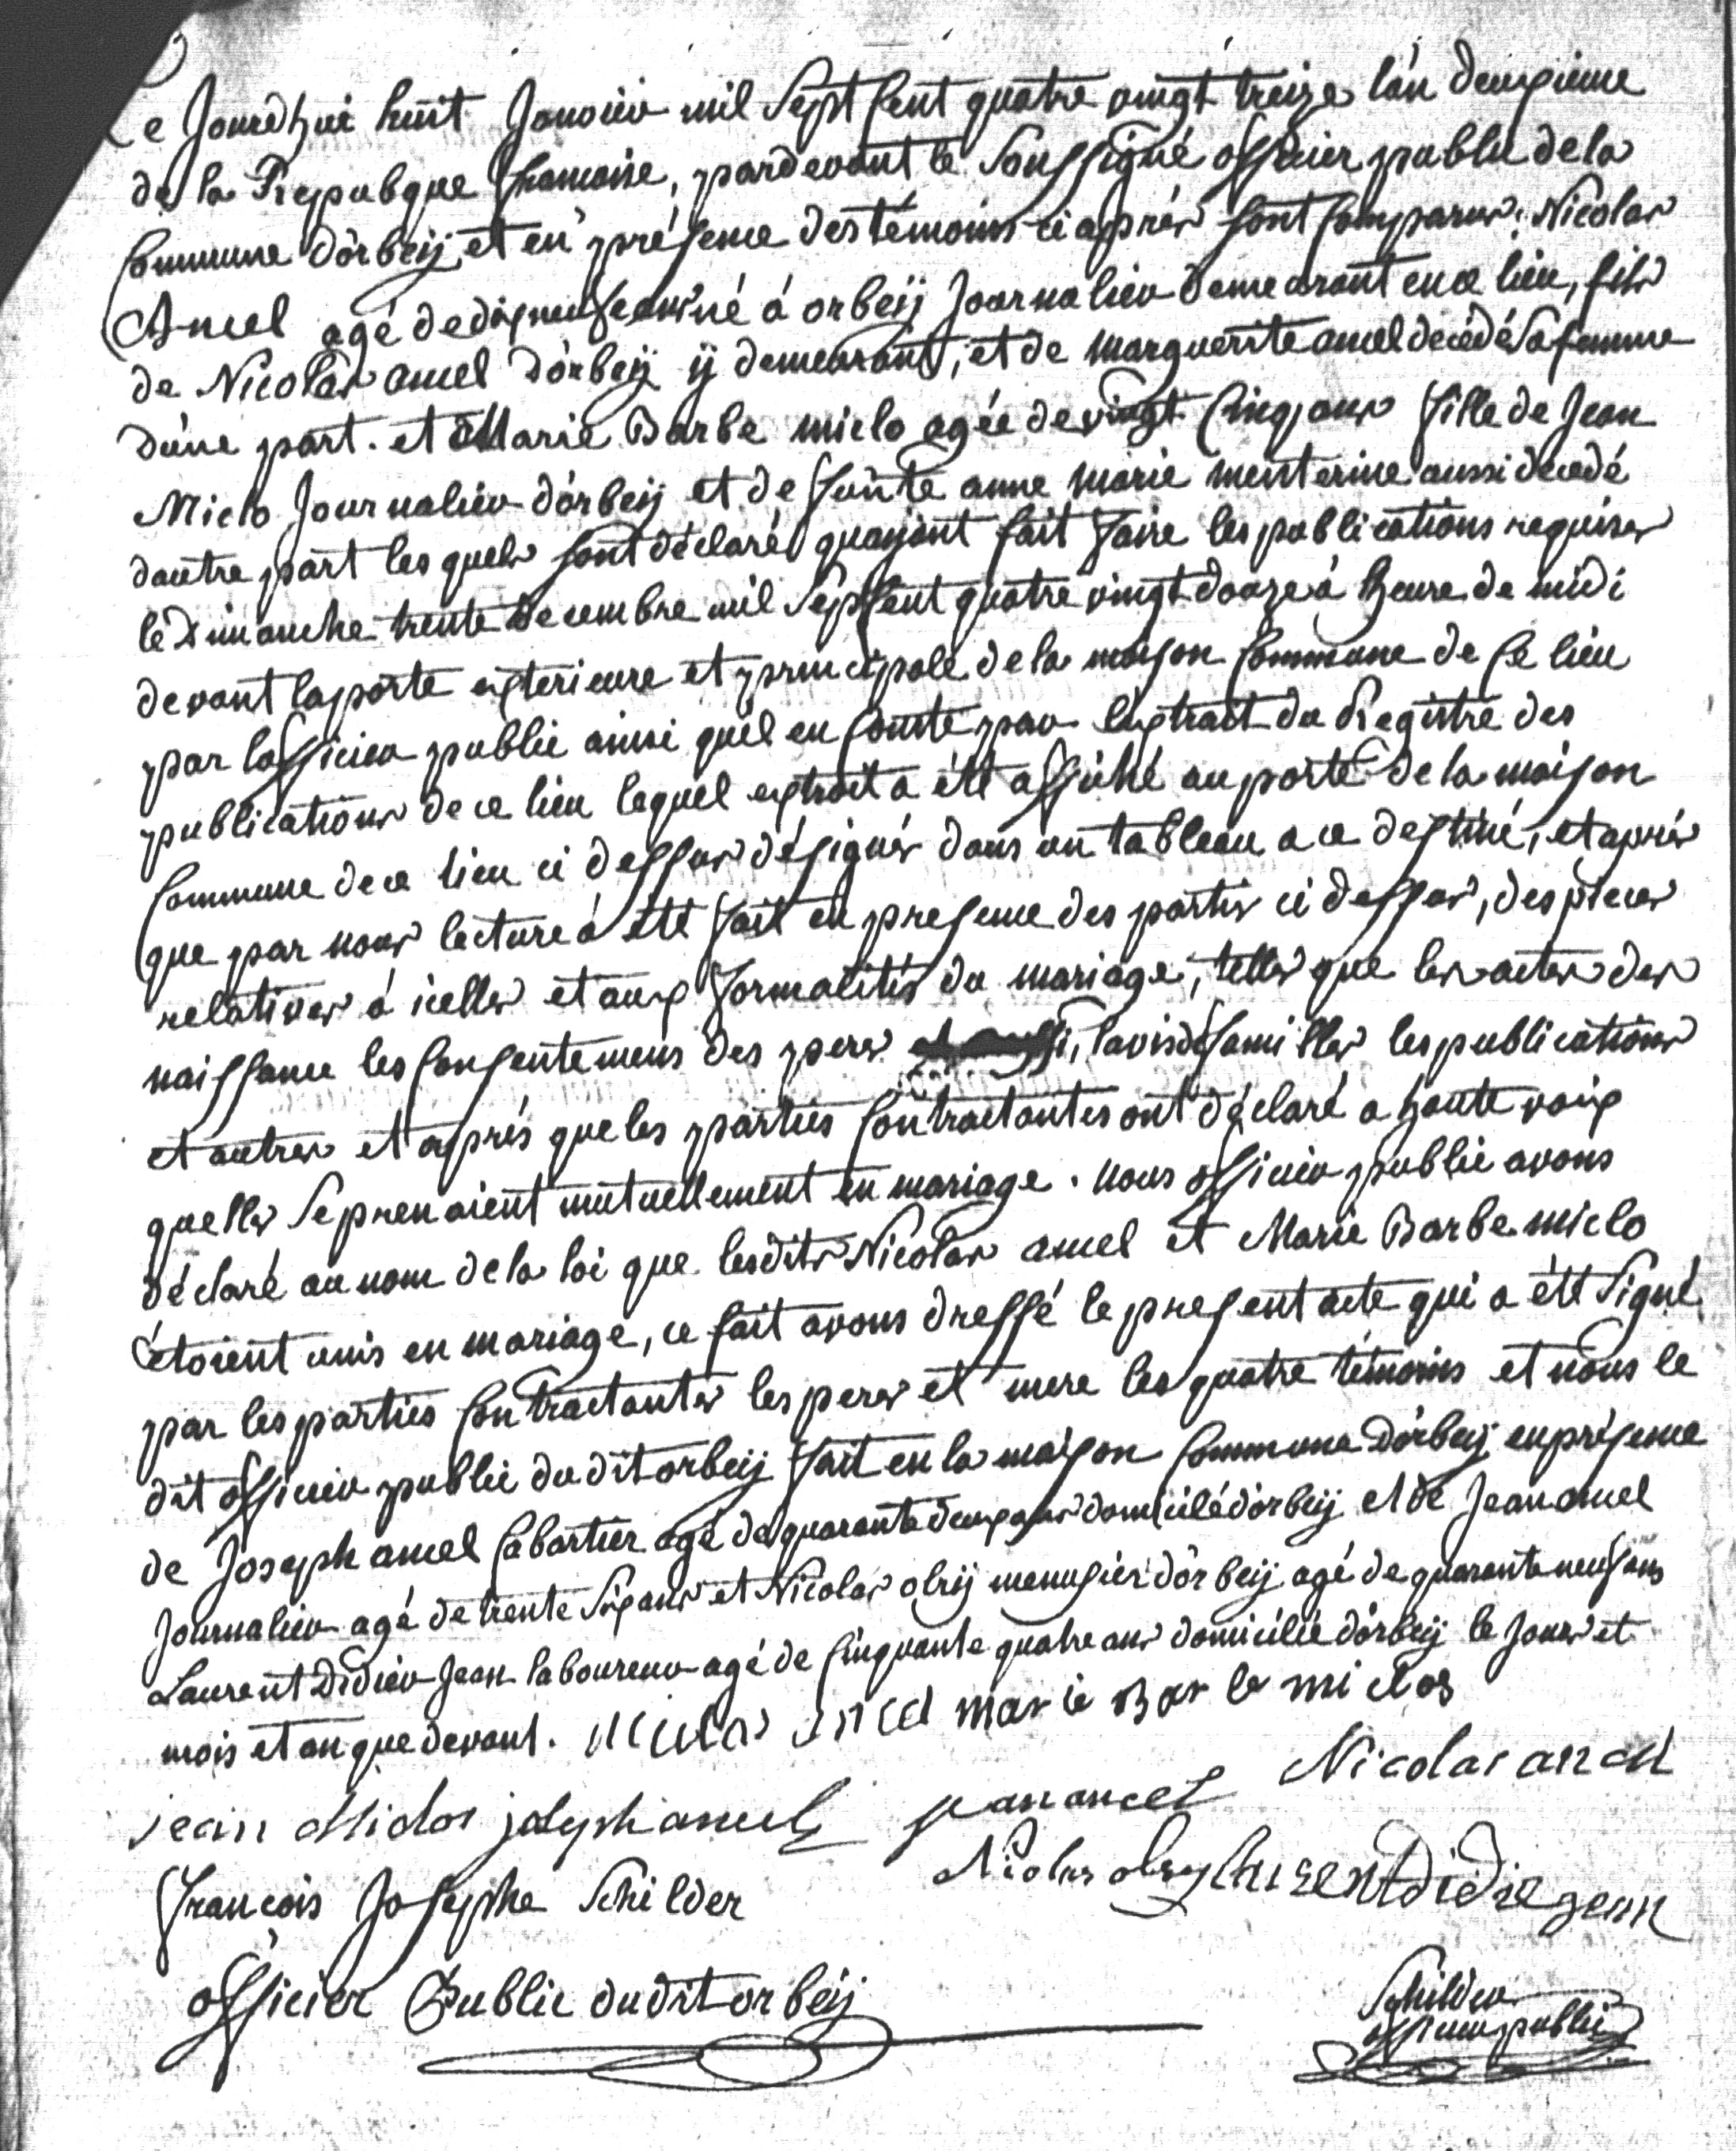 Ce Jourdhui huit Janvier mil Sept Cent quatre vingt treize l'an deuxieme
de la Repubque francoise, pardevant le Soussigné officier public de la
Commune dórbeÿ, et en présence des témoins ci aprés sont Comparus; Nicolas
Ancel agé de dixneuf ans né á orbeÿ Journalier demeurant en ce lieu, fils
de Nicolas ancel dórbeÿ ÿ demeurant, et de marguerite ancel décédé Sa femme
dúne part. et Marie Barbe miclo agée de vingt Cinq ans fille de Jean
Miclo Journalier dórbeÿ et de funte anne marie menterine aussi décedé
dautre part les quels sont déclaré quayant fait faire les publications requises
le Dimanche trente Decembre mil Sept Cent quatre vingt douze á heure de midi
devant la porte exterieure et principale de la maison Commune de Ce lieu
par lofficier public ainsi quél en Conste par lextrait du Registre des
publications de ce lieu lequel extrait a été affiché au porte de la maison
Commune de ce lieu ci dessus désignés dans un tableau a ce destiné, et aprés
que par nous lecture á été fait en presence des partis ci dessus, des pieces
relatives á icelles et aux formalités du mariage, telles que les actes des
naissance les Consentemens des peres lavis de familles les publications
et autres et aprés que les parties Contractantes ont déclaré a haute voix
quelles Se prenoient mutuellement en mariage. nous officier public avons
déclaré au nom de la loi que lesdits Nicolas ancel et Marie Barbe miclo
étoient unis en mariage, ce fait avons dressé le present acte qui a été Signé
par les parties Contractantes les peres et mere les quatre témoins et nous le
dit officier public du dit orbeÿ fait en la maison Commune dórbeÿ en présence
de Joseph ancel Cabartier agé de quarante deux ans domicilé dórbeÿ et de Jean ancel
Journalier agé de trente Six ans et Nicolas olrÿ menusier dórbeÿ agé de quarante neuf ans
Laurent Didier Jean laboureur agé de Cinquante quatre ans domicilié dórbeÿ le Jour et
mois et an que devant. Nicolas ancel marie Barbe miclos
jean Miclos joseph ancel jean ancel Nicolas ancel
François Josephe Schilder Nicolas olry Laurent didie jean
officier Public dudit orbeÿ Schilder
officier public